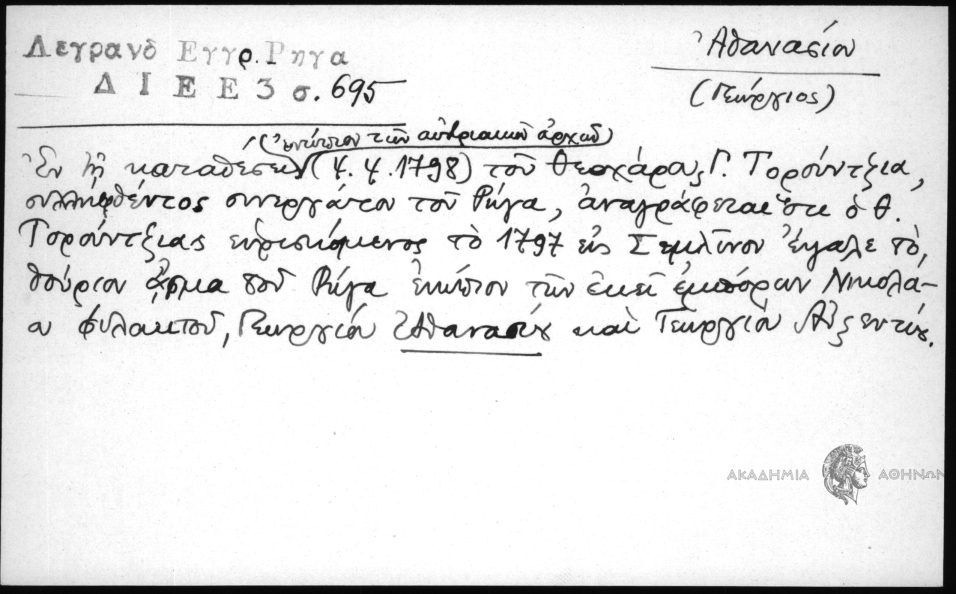 Λεγρανδ Εγγρ. Ρηγα
Δ Ι Ε Ε 3 σ. 695
Ἀθανασίου
(Γεώργιος)
(ἐνώπιον τῶν αὐστριακῶν ἀρχῶν)
Ἐν τῇ καταθέσει (4.4.1798) τοῦ Θεοχάρους Γ. Τορούντζια,
συλληφθέντος συνεργάτου τοῦ Ρήγα, ἀναγράφεται ὅτι ὁ Θ.
Τορούντζιας εὑρισκόμενος τὸ 1797 εἰς Σεμλῖνον ἔψαλε τὸ
θούριον ᾆσμα τοῦ Ρήγα ἐνώπιον τῶν ἐκεῖ ἐμπόρων Νικολά-
ου Φυλακτοῦ, Γεωργίου Ἀθανασίου καὶ Γεωργίου Αὐξεντίου.
ΑΚΑΔΗΜΙΑ ΑΘΗΝΩΝ